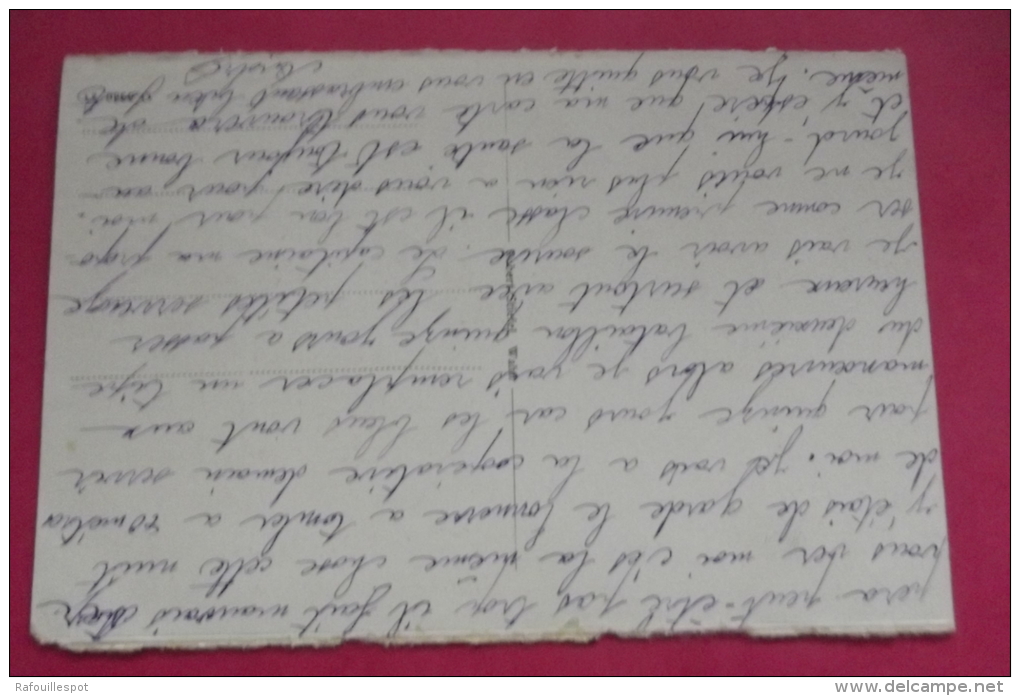 pera peut-être pas trop il fait mauvais chez
vous ver moi c'es la même chose cette nuit
j'étais de garde le tonnerre a tomber a 20 mètres
de moi. je vais a la coopérative demain servir
par quinze jours car les bleus vont aux
manœuvres alors je vais remplacer un type
du deuxième bataillon quinze jours a passer
heureux et surtout avec les petites serveuse
je vais avoir le sourire. le capitaine ma propo-
ser comme premiere classe il est bon pour moi.
je ne voits plus rien a vous dire pour au
jourd-hui que la santé est toujour bonne
et j'espère que ma carte vous trouvera de
même. Je vous quitte en vous embrassant bien
Rafouillespot
www.delcampe.net